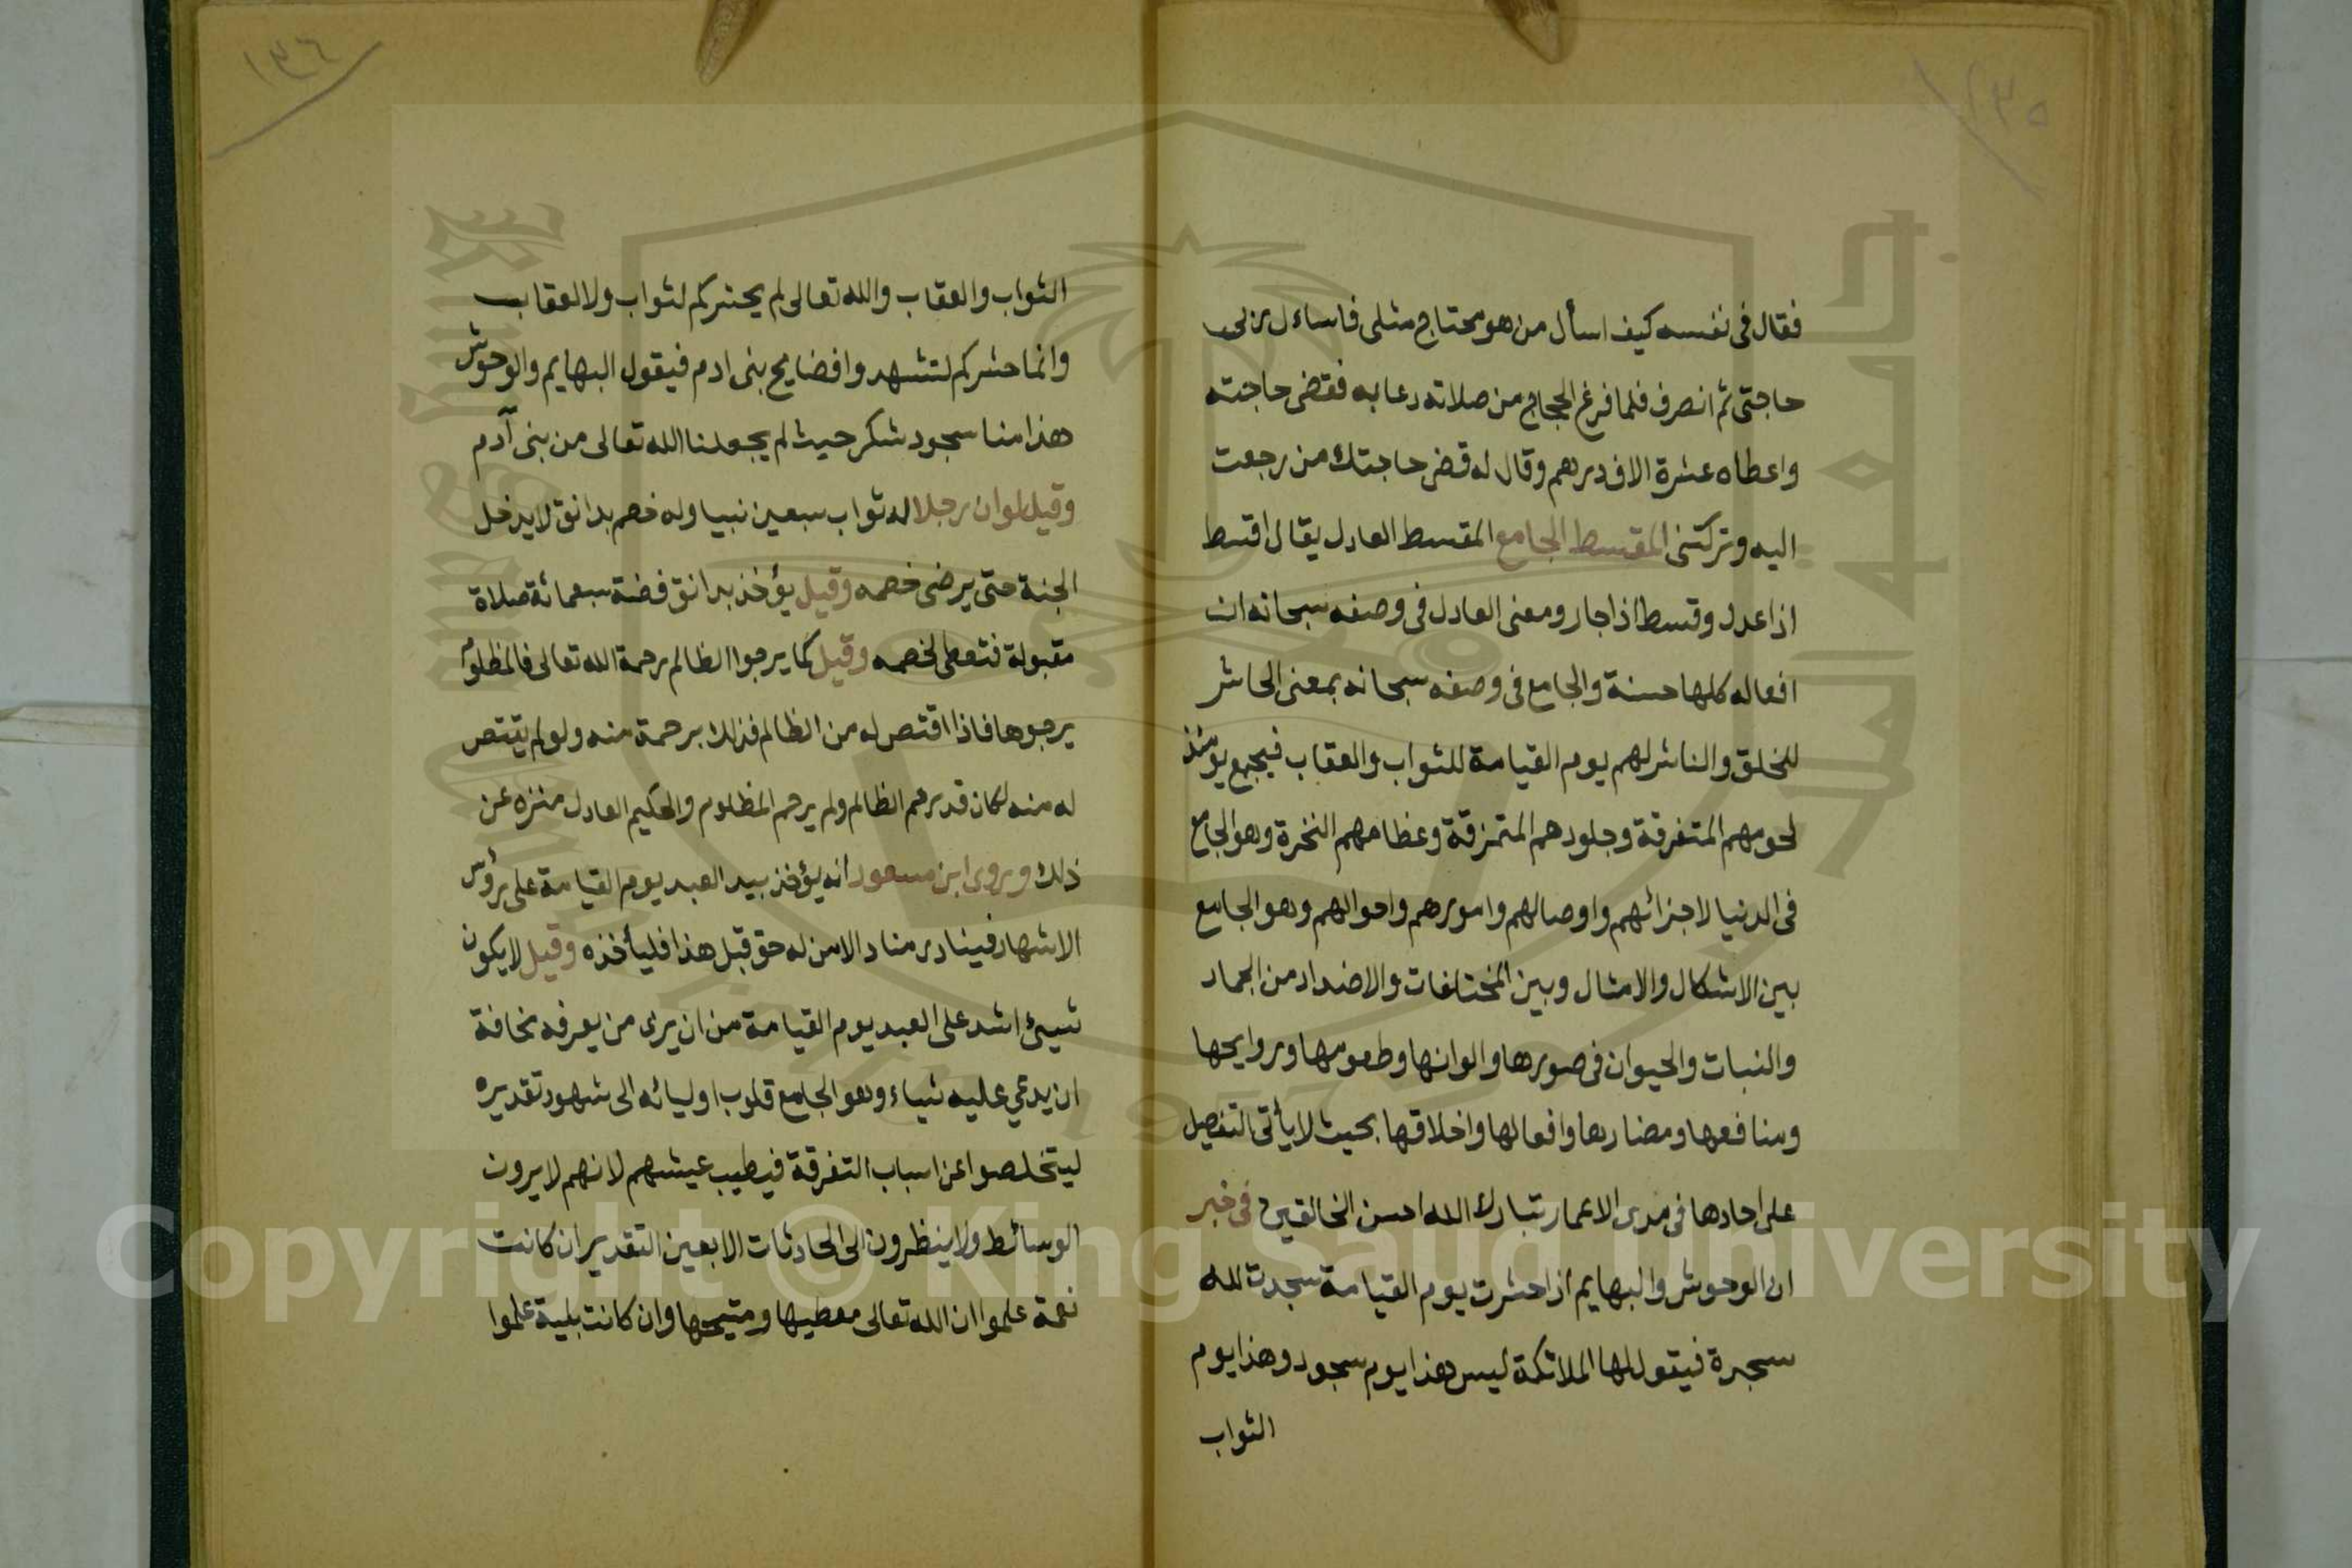 ١٣٥
فقال فى نفسه كيف اسأل من هو محتاج مثلى فاساءل ربى
حاجتى ثم انصرف فلما فرغ الحجاج من صلاته دعا به فقضى حاجته
واعطاه عشرة الاف درهم وقال له قضى حاجتك من رجعت
اليه وتركتنى المقسط الجامع المقسط العادل يقال اقسط
اذا عدل وقسط اذا جار ومعنى العادل فى وصفه سبحانه ان
افعاله كلها حسنة والجامع فى وصفه سبحانه بمعنى الحاشر
للخلق والناشر لهم يوم القيامة للثواب والعقاب فيجمع يومئذ
لحومهم المتفرقة وجلودهم المتمزقة وعظامهم النخرة وهو الجامع
فى الدنيا لاجزائهم واوصالهم وامورهم واحوالهم وهو الجامع
بين الاشكال والامثال وبين المختلفات والاضداد من الجماد
والنبات والحيوان فى صورها والوانها وطعومها وروايحها
ومنافعها ومضارها وافعالها واخلاقها بحيث لا يأتى التفصيل
على احادها فى مدى الاعمار تبارك الله احسن الخالقين فى خبر
ان الوحوش والبهايم اذا حشرت يوم القيامة سجدت لله
سجدة فيقول لها الملائكة ليس هذا يوم سجود وهذا يوم
الثواب
١٣٦
الثواب والعقاب والله تعالى لم يحشركم لثواب ولا لعقاب
وانما حشركم لتشهدوا فضايح بنى ادم فيقول البهايم والوحوش
هذا منا سجود شكر حيث لم يجعلنا الله تعالى من بنى آدم
وقيل لو ان رجلا له ثواب سبعين نبيا وله خصم بدانق لا يدخل
الجنة حتى يرضى خصمه وقيل يؤخذ بدانق فضة سبعمائة صلاة
مقبولة فتعطى لخصمه وقيل كما يرجوا الظالم رحمة الله تعالى فالمظلوم
يرجوها فاذا اقتص له من الظالم فذلك برحمة منه ولو لم يقتص
له منه لكان قد يرحم الظالم ولم يرحم المظلوم والحكيم العادل منزه عن
ذلك وروى ابن مسعود انه يؤخذ بيد العبد يوم القيامة على رؤس
الاشهاد فينادى مناد الا من له حق قبل هذا فليأخذه وقيل لا يكون
شيئ اشد على العبد يوم القيامة من ان يرى من يعرفه مخافة
ان يدعي عليه شياء وهو الجامع قلوب اوليائه الى شهود تقديره
ليتخلصوا عن اسباب التفرقة فيطيب عيشهم لانهم لا يرون
الوسائط ولا ينظرون الى الحادثات الا بعين التقدير ان كانت
نعمة علموا ان الله تعالى معطيها ومتيحها وان كانت بلية علموا
Copyright © King Saud University